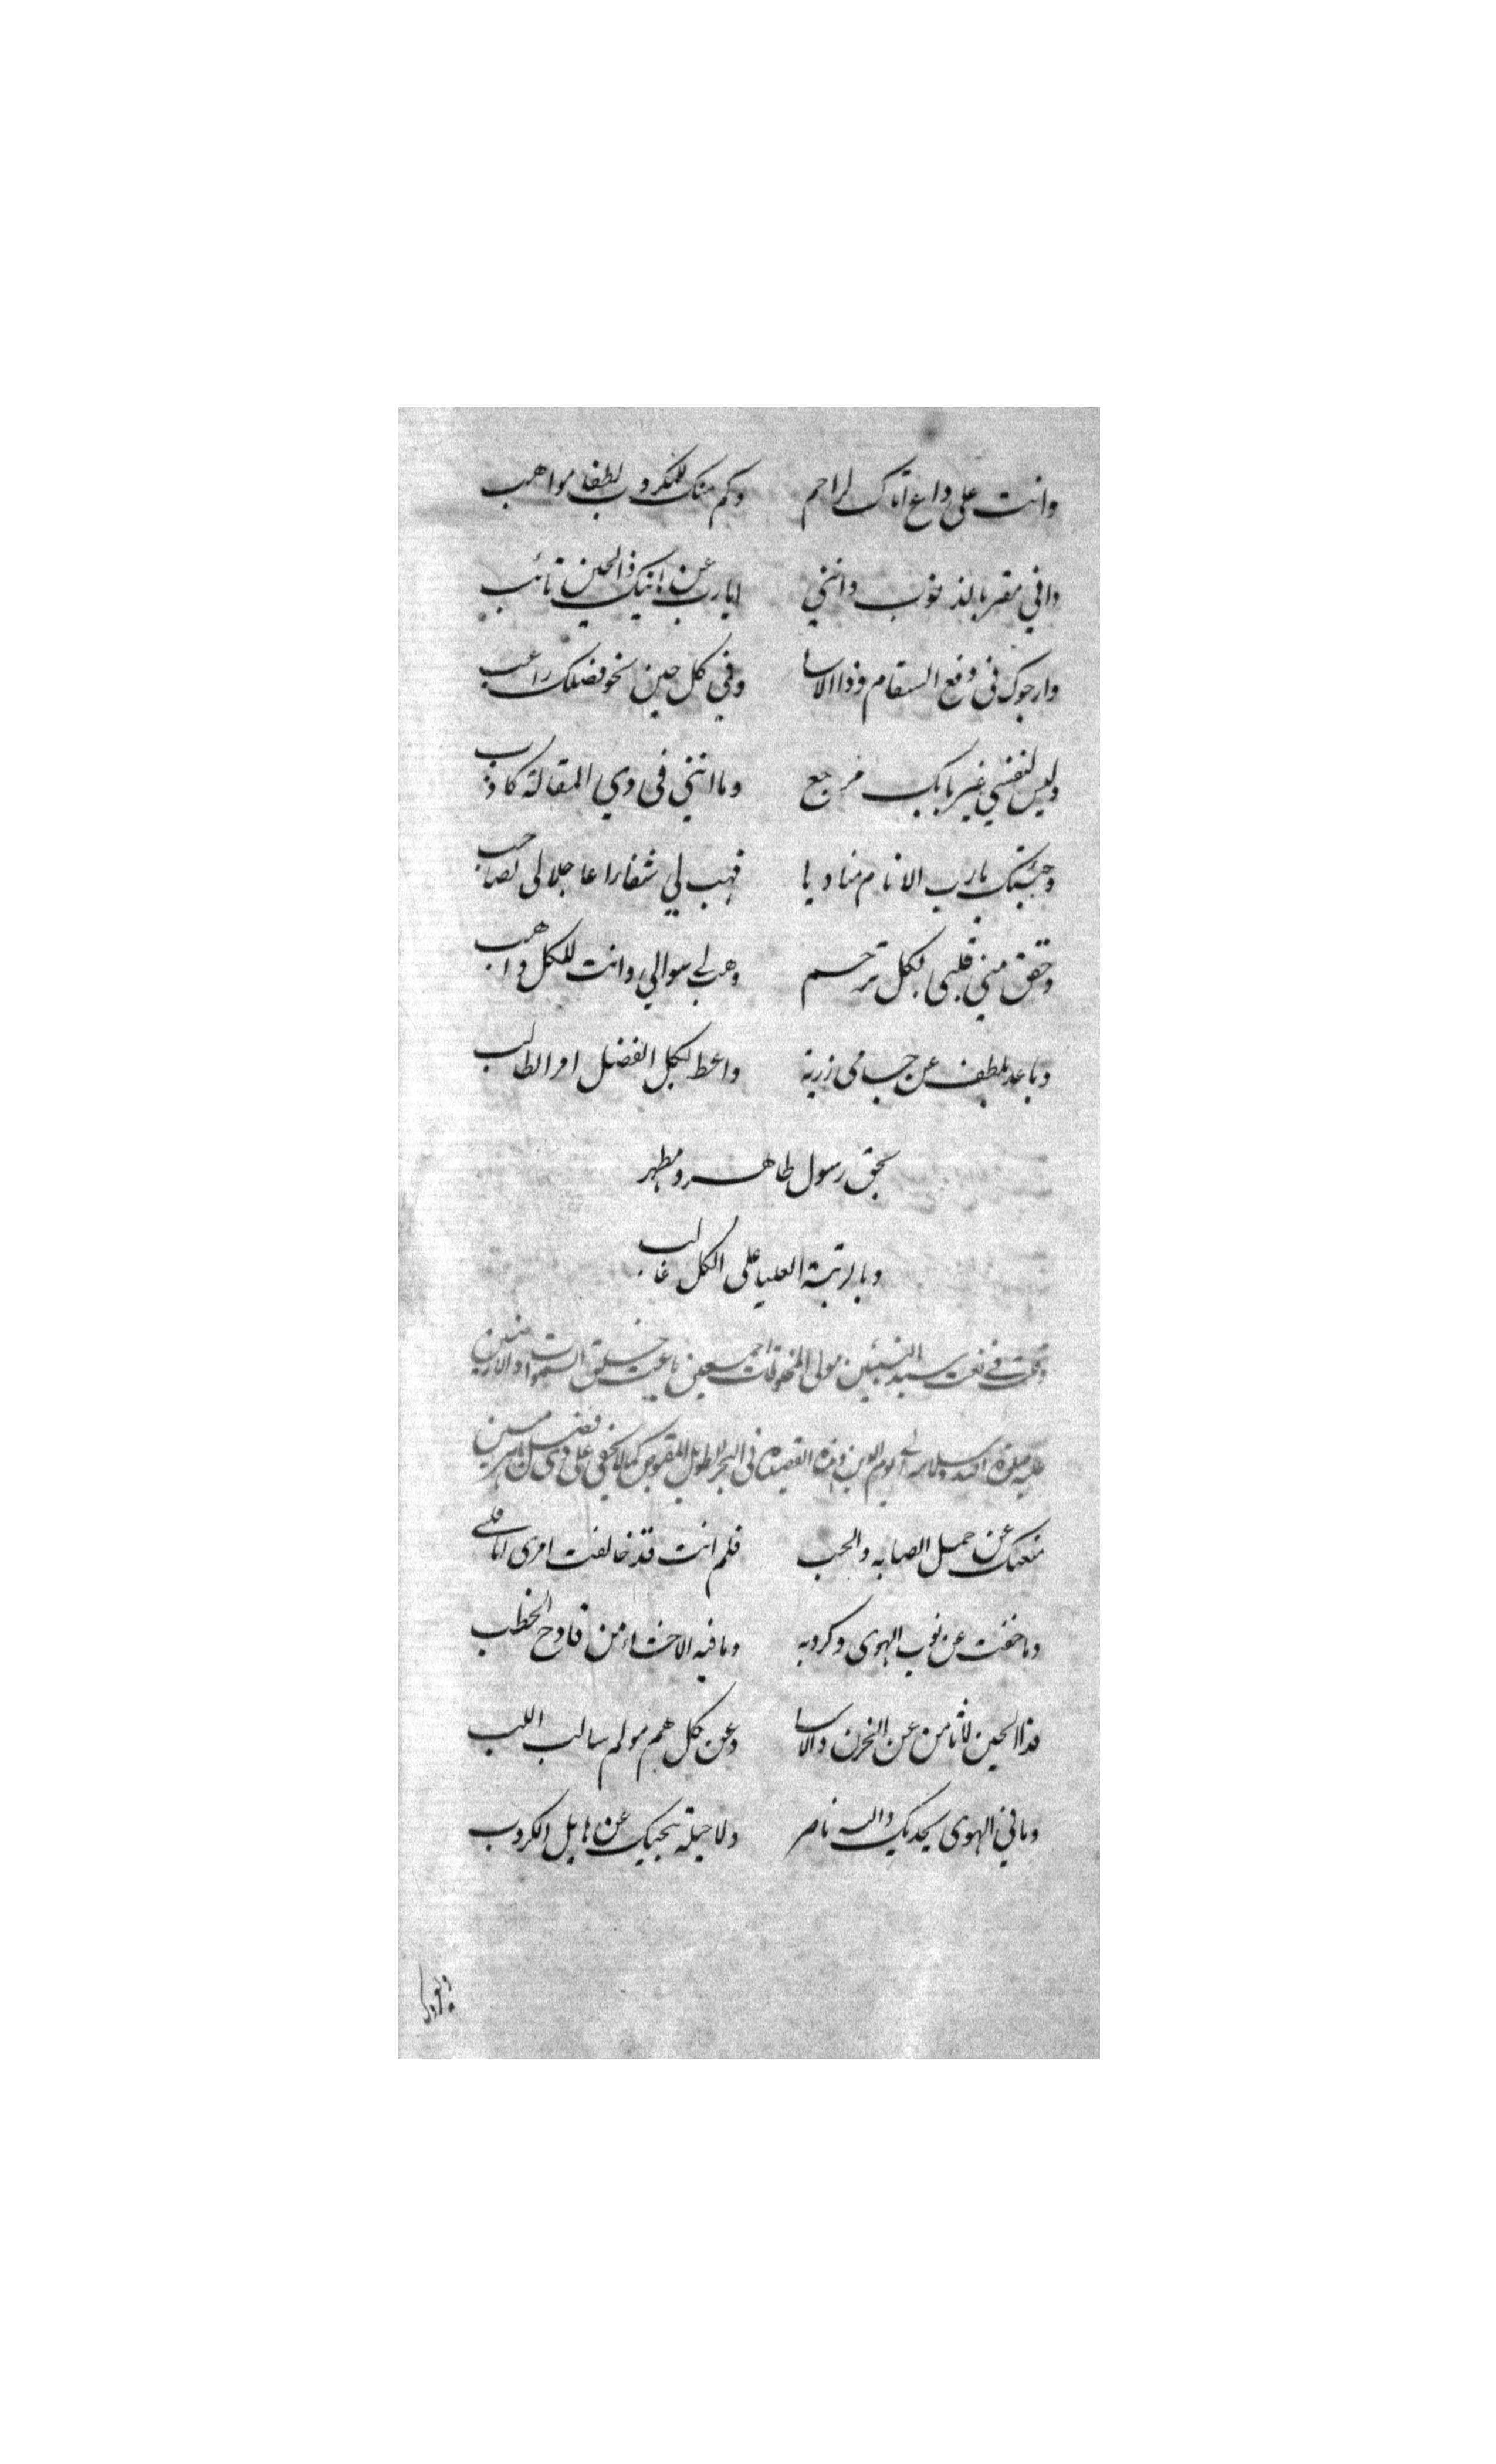 وانت على داع اتاك لراحم وكم منك للمكروب لطفا مواهب
واني مقر بالذنوب وانني ايا رب عن اتيك ذالحين تائب
وارجوك في دفع السقام وذا الاسا وفي كل حين نحو فضلك راغب
وليس لنفسي غير بابك مرجع وما انني في ذي المقالة كاذب
وجئتك يا رب الانام مناديا فهب لي شفاءا عاجلا لي تصاحب
وحقق مني قلبي لكل ترحم وهب لي سوالي وانت للكل واهب
وباعد بلطف عن جسامى زرية واعط لكل الفضل امرا لطالب
بحق رسول طاهر ومطهر
وبالرتبة العليا على الكل غالب
وقلت في نعت سيد النبيين مولى المخلوقات اجمعين باعث خلق السموات والارضين
عليه صلوة الله وسلامه الى يوم الدين وهذه القصيدة في البحر الطويل المقبوض كما لا يخفى على ذي فضل
منعتك عن حمل الصبابه والحب فلم انت قد خالفت امرى اقلبي
وما خفت عن نوب الهوى وكروبه وما فيه الاحشاء من فادح الخطب
فذا الحين لا تامن عن الحزن والاسا وعن كل هم مولم سالب اللب
وما في الهوى يجديك والله ناصر ولا حيلة تنجيك عن هايل الكروب